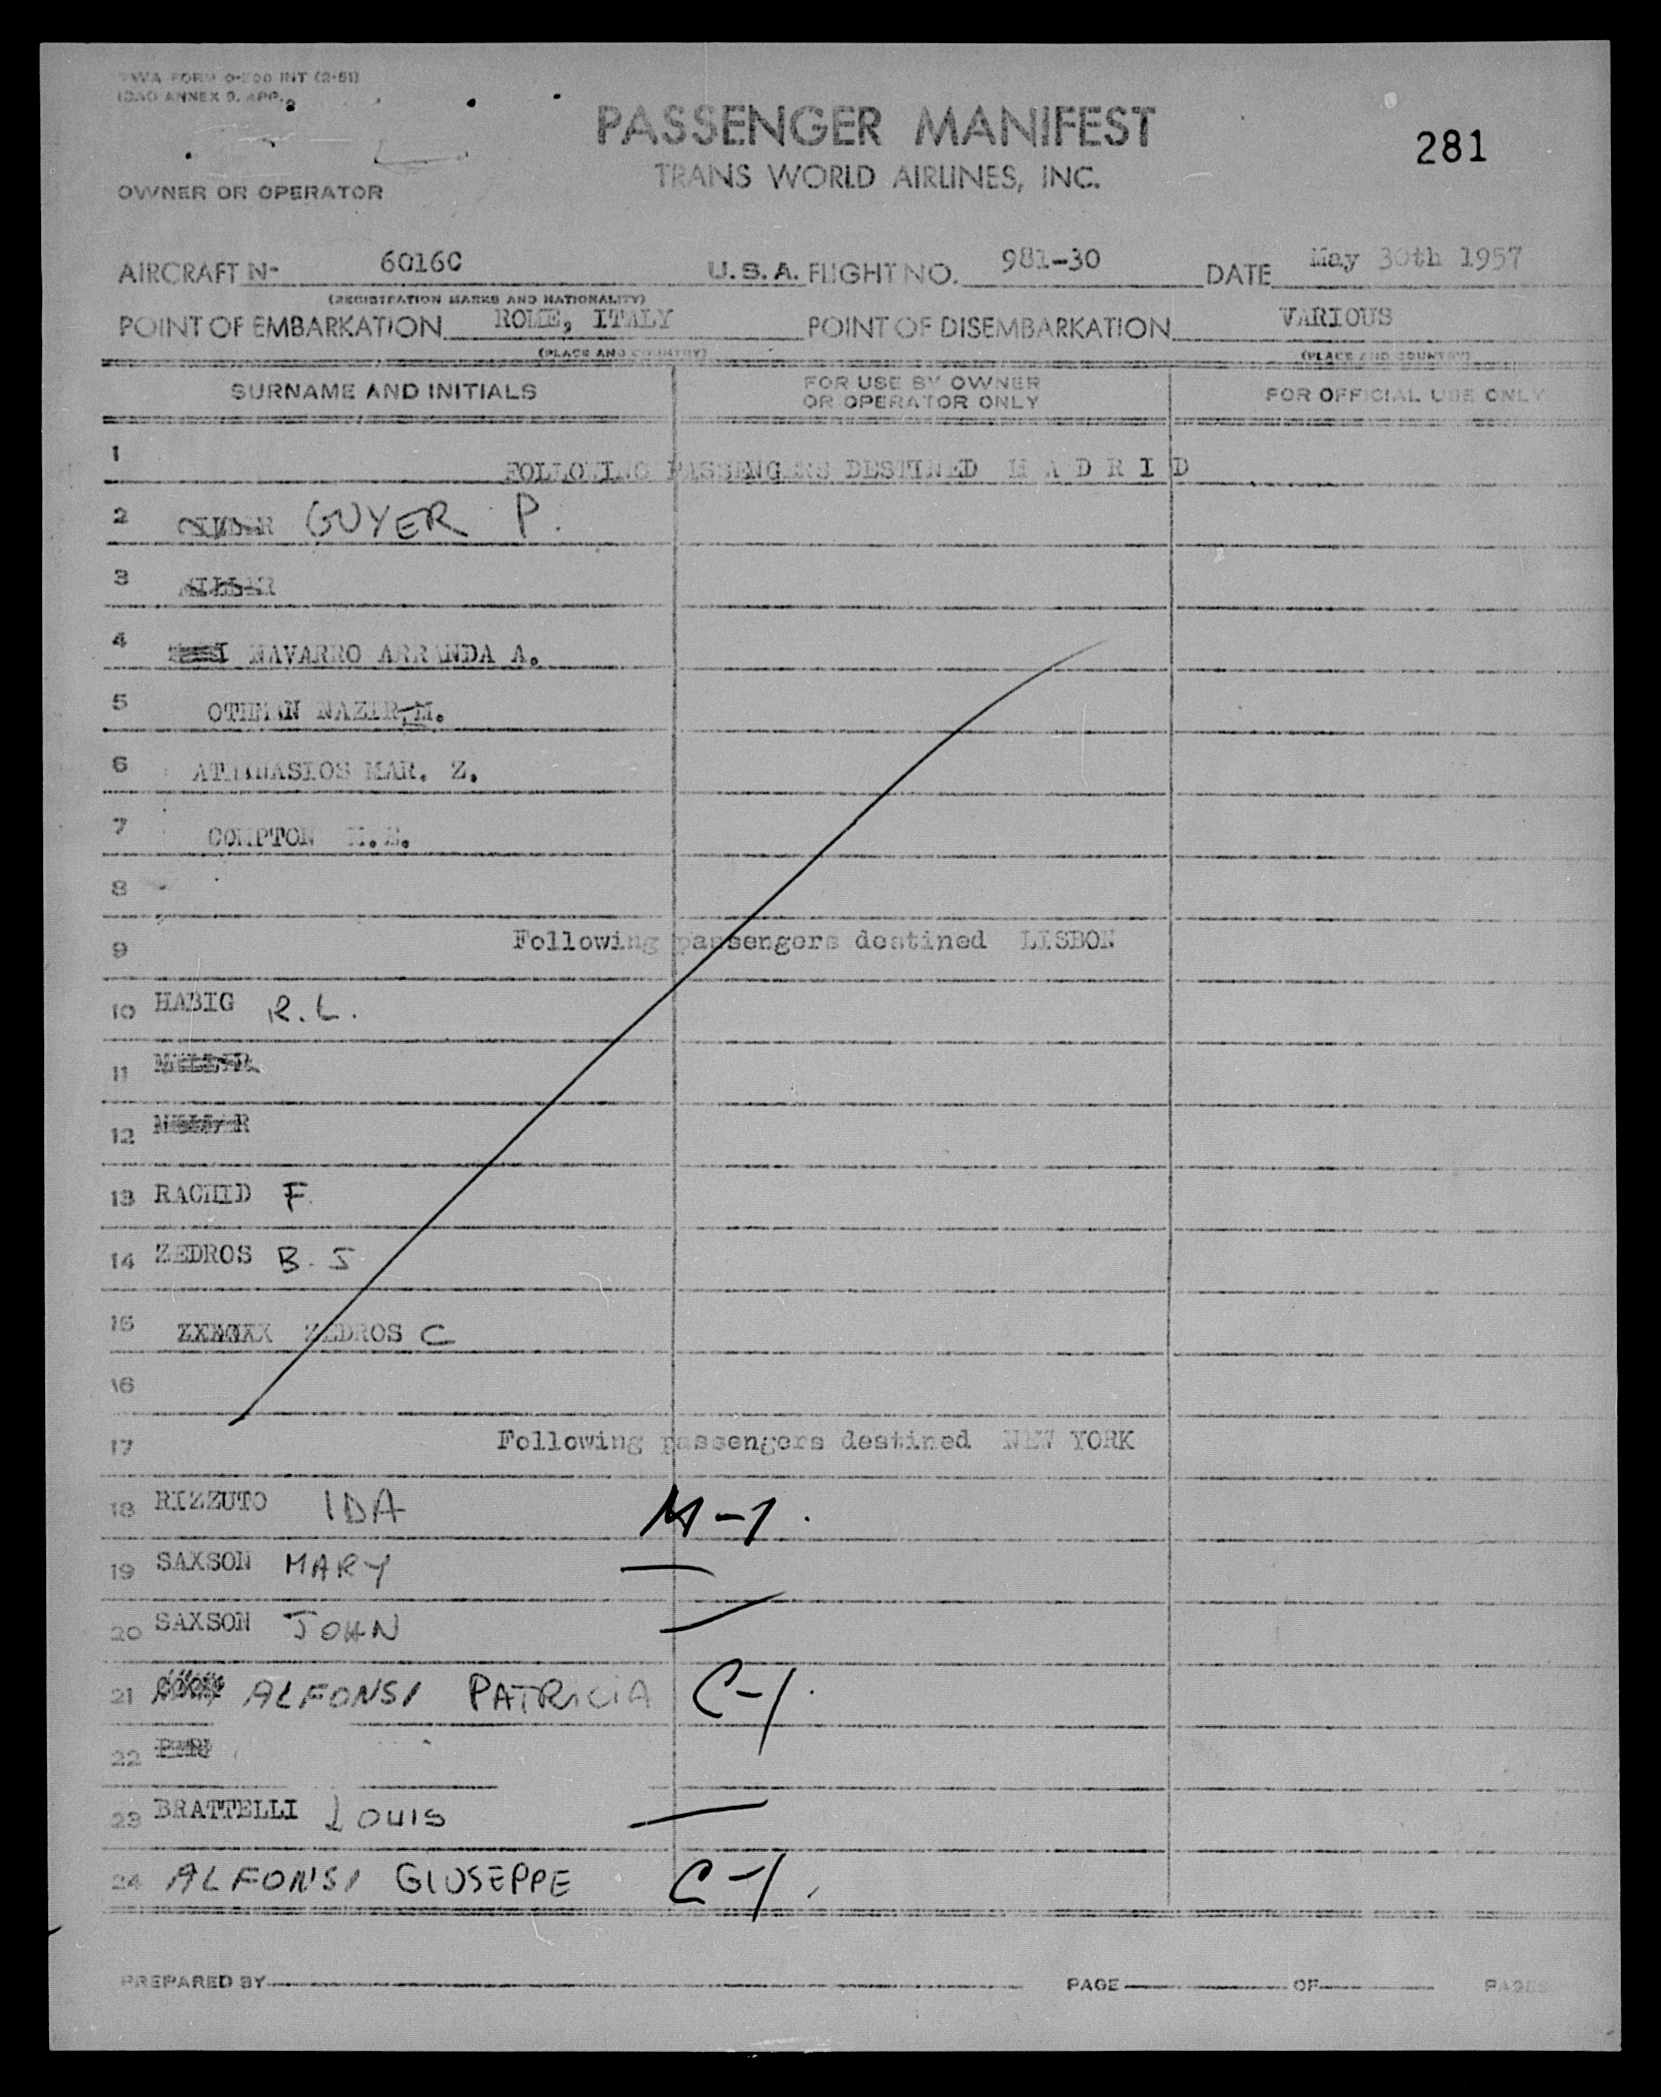 TWA FORM O-200 INT (2-51)
ICAO ANNEX 9, APP.
PASSENGER MANIFEST
281
TRANS WORLD AIRLINES, INC.
OWNER OR OPERATOR
AIRCRAFT N- 6016C U.S.A. FLIGHT NO. 981-30 DATE May 30th 1957
(REGISTRATION MARKS AND NATIONALITY)
POINT OF EMBARKATION ROME, ITALY POINT OF DISEMBARKATION VARIOUS
(PLACE AND COUNTRY) (PLACE AND COUNTRY)
SURNAME AND INITIALS FOR USE BY OWNER OR OPERATOR ONLY FOR OFFICIAL USE ONLY
1 FOLLOWING PASSENGERS DESTINED M A D R I D
2 GUYER P.
3 MILLER
4 NAVARRO ARRANDA A.
5 OTHMAN NAZIR, M.
6 ATHANASIOS MAR. Z.
7 COMPTON
8
9 Following passengers destined LISBON
10 HABIG R.L.
11
12
13 RACHID F.
14 ZEDROS B. J
15 ZEDROS C
16
17 Following passengers destined NEW YORK
18 RIZZUTO IDA M-1.
19 SAXSON MARY —
20 SAXSON JOHN —
21 ALFONSI PATRICIA C-1.
22
23 BRATTELLI LOUIS —
24 ALFONSI GIUSEPPE C-1.
PREPARED BY PAGE OF PAGES